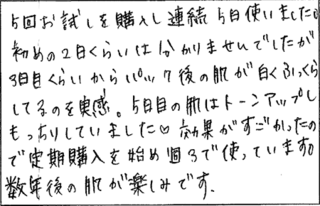 5回お試しを購入し連続5日使いました。
初めの2日くらいは分かりませんでしたが
3日目くらいからパック後の肌が白くふっくら
してるのを実感。5日目の肌はトーンアップし
もっちりしていました♡ 効果がすごかったの
で定期購入を始め週3で使っています。
数年後の肌が楽しみです.